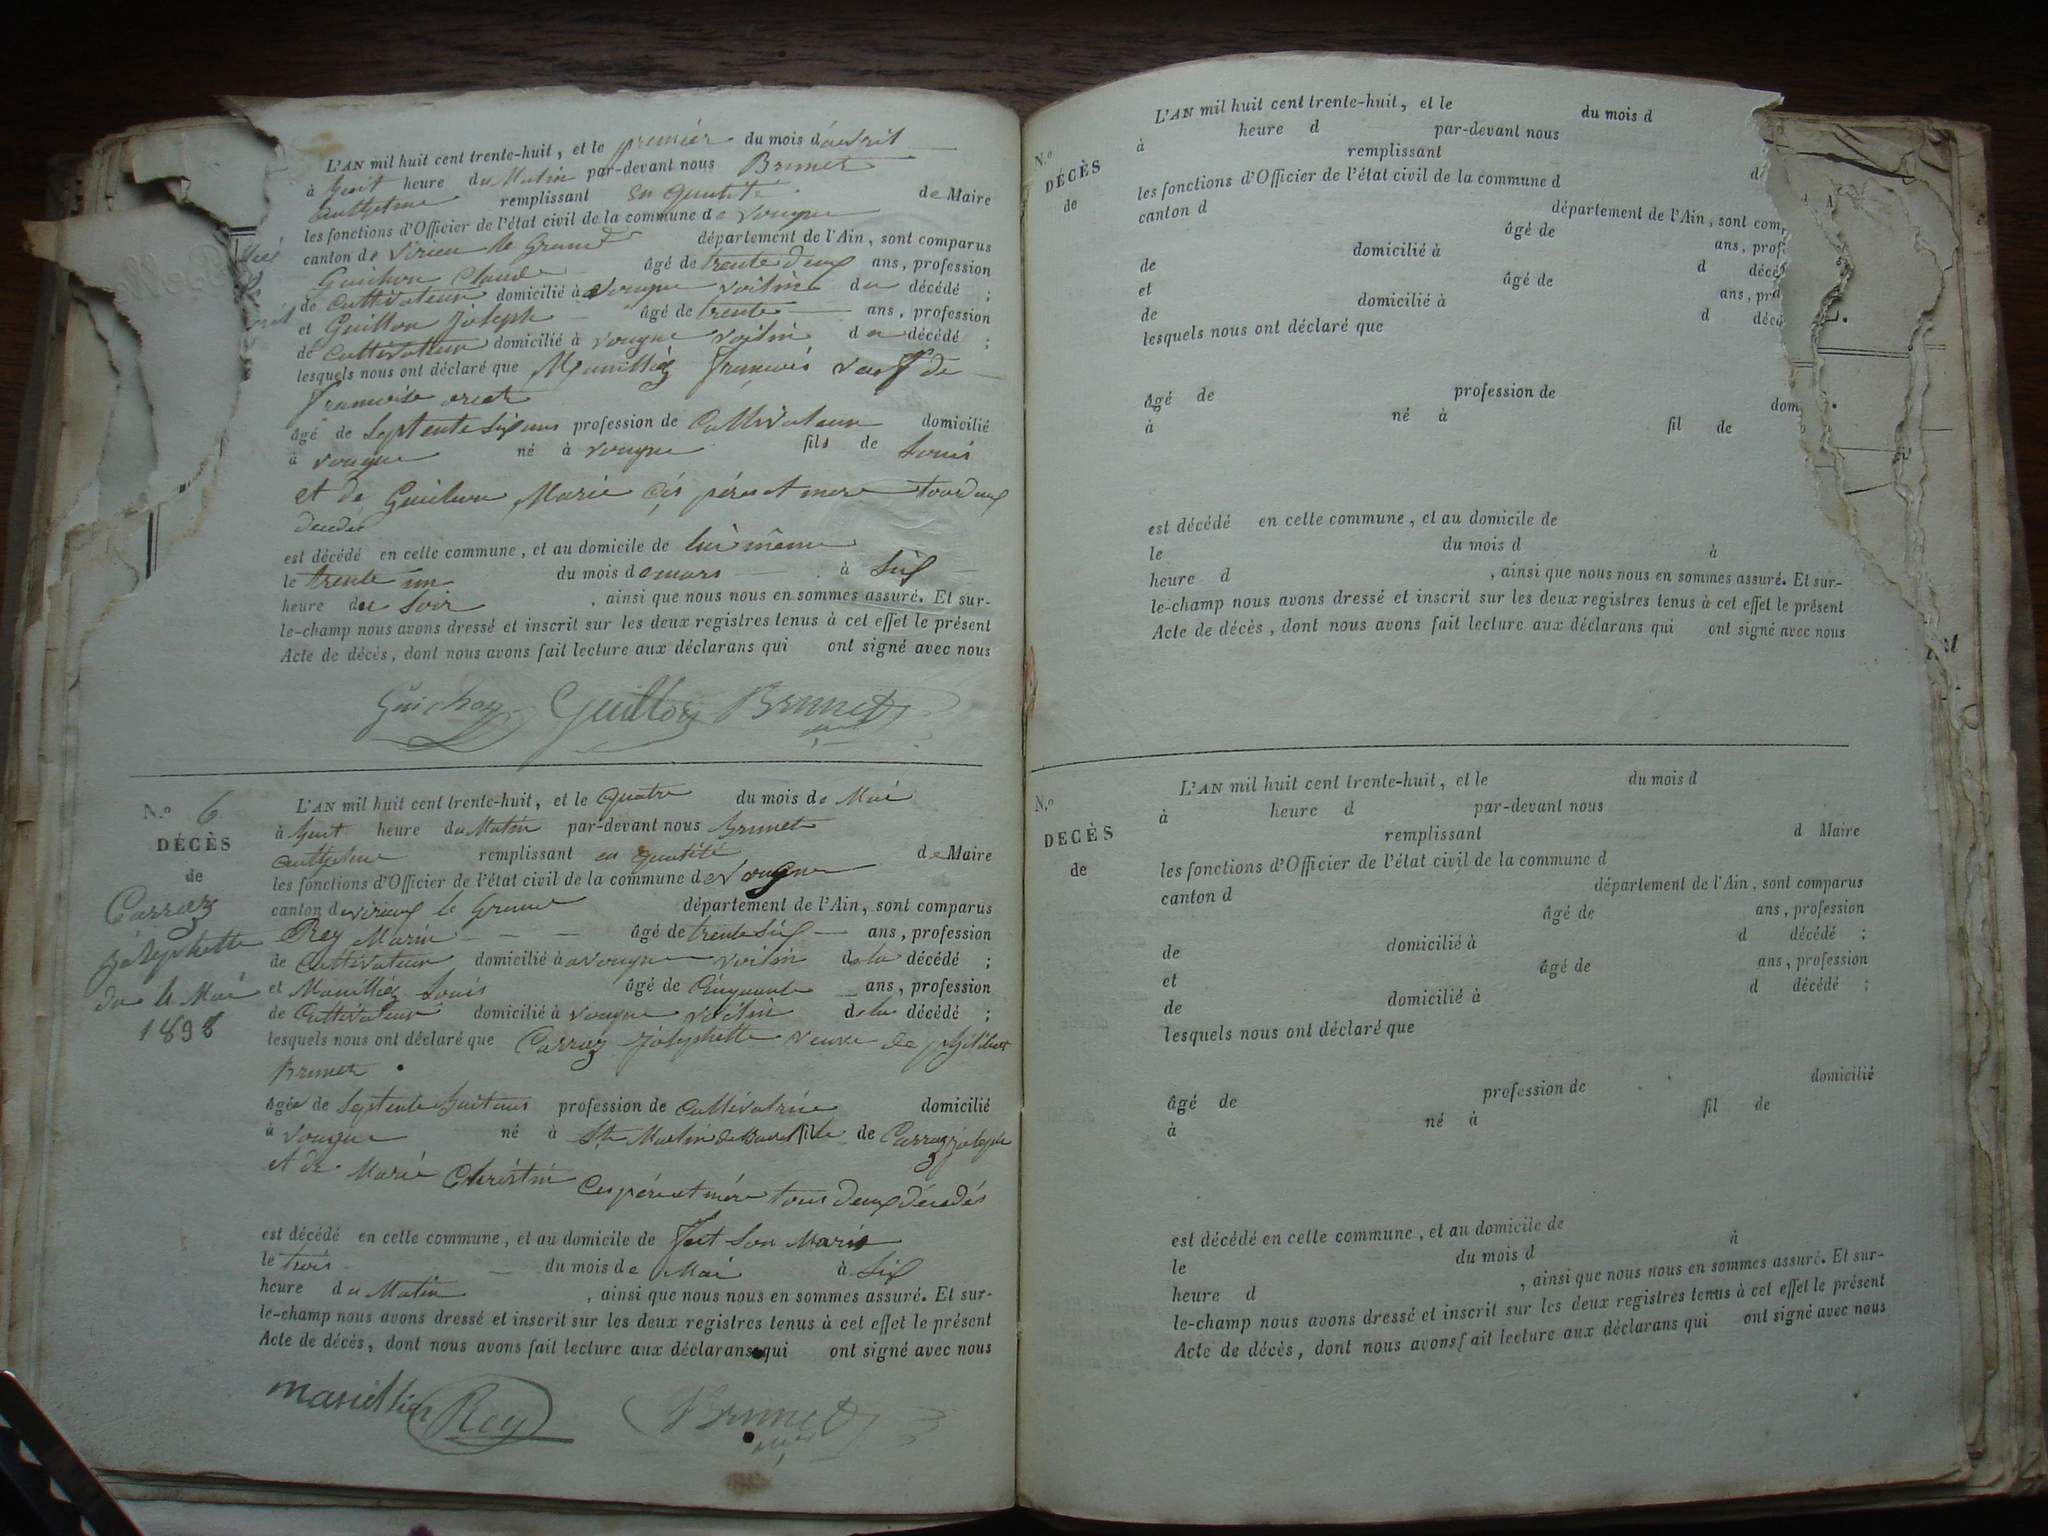 L'AN mil huit cent trente-huit, et le premier du mois d'avril
à huit heure du Matin par-devant nous Brunet
anthelme remplissant en qualité de Maire
les fonctions d'Officier de l'état civil de la commune de vongne
canton de virieu le Grand département de l'Ain, sont comparus
Guichon Claude âgé de trente deux ans, profession
de Cultivateur domicilié à vongne voisin du décédé ;
et Guillon Joseph âgé de trente ans, profession
de Cultivateur domicilié à vongne voisin du décédé ;
lesquels nous ont déclaré que françois veuf de
françoise
âgé de septente six ans profession de Cultivateur domicilié
à vongne né à vongne fils de Louis
et de Marie Cés pére et mere tous deux
est décédé en cette commune, et au domicile de lui même
le trente un du mois de mars à six
heure du soir , ainsi que nous nous en sommes assuré. Et sur-
le-champ nous avons dressé et inscrit sur les deux registres tenus à cet effet le présent
Acte de décès, dont nous avons fait lecture aux déclarans qui ont signé avec nous
Guichon Guillon Brunet
N.° 6
DÉCÈS
de
Carraz
Josephette
du 4 Mai
1838
L'AN mil huit cent trente-huit, et le quatre du mois de Mai
à huit heure du Matin par-devant nous Brunet
anthelme remplissant en qualité de Maire
les fonctions d'Officier de l'état civil de la commune de vongne
canton de virieux le Grand département de l'Ain, sont comparus
Rey Marin âgé de trente six ans, profession
de Cultivateur domicilié à vongne voisin de la décédé ;
et Louis âgé de Cinquante ans, profession
de Cultivateur domicilié à vongne voisin de la décédé ;
lesquels nous ont déclaré que Carraz Josephette veuve de
Brunet
âgée de septente huit ans profession de Cultivatrice domicilié
à vongne né à St Martin de fille de Carraz joseph
et de Marie Christin Ces pére et mére tous deux décédés
est décédé en cette commune, et au domicile de feut son Maris
le trois du mois de Mai à six
heure du Matin , ainsi que nous nous en sommes assuré. Et sur-
le-champ nous avons dressé et inscrit sur les deux registres tenus à cet effet le présent
Acte de décès, dont nous avons fait lecture aux déclarans qui ont signé avec nous
Rey Brunet
N.°
DÉCÈS
de
L'AN mil huit cent trente-huit, et le du mois d
à heure d par-devant nous
remplissant d
les fonctions d'Officier de l'état civil de la commune d
canton d département de l'Ain, sont com
âgé de ans, prof
de domicilié à d décé
et âgé de ans, pro
de domicilié à d décé
lesquels nous ont déclaré que
âgé de profession de dom
à né à fil de
est décédé en cette commune, et au domicile de
le du mois d à
heure d , ainsi que nous nous en sommes assuré. Et sur-
le-champ nous avons dressé et inscrit sur les deux registres tenus à cet effet le présent
Acte de décès, dont nous avons fait lecture aux déclarans qui ont signé avec nous
N.°
DECÈS
de
L'AN mil huit cent trente-huit, et le du mois d
à heure d par-devant nous
remplissant d Maire
les fonctions d'Officier de l'état civil de la commune d
canton d département de l'Ain, sont comparus
âgé de ans, profession
de domicilié à d décédé ;
et âgé de ans, profession
de domicilié à d décédé ;
lesquels nous ont déclaré que
âgé de profession de domicilié
à né à fil de
est décédé en cette commune, et au domicile de
le du mois d à
heure d , ainsi que nous nous en sommes assuré. Et sur-
le-champ nous avons dressé et inscrit sur les deux registres tenus à cet effet le présent
Acte de décès, dont nous avons fait lecture aux déclarans qui ont signé avec nous